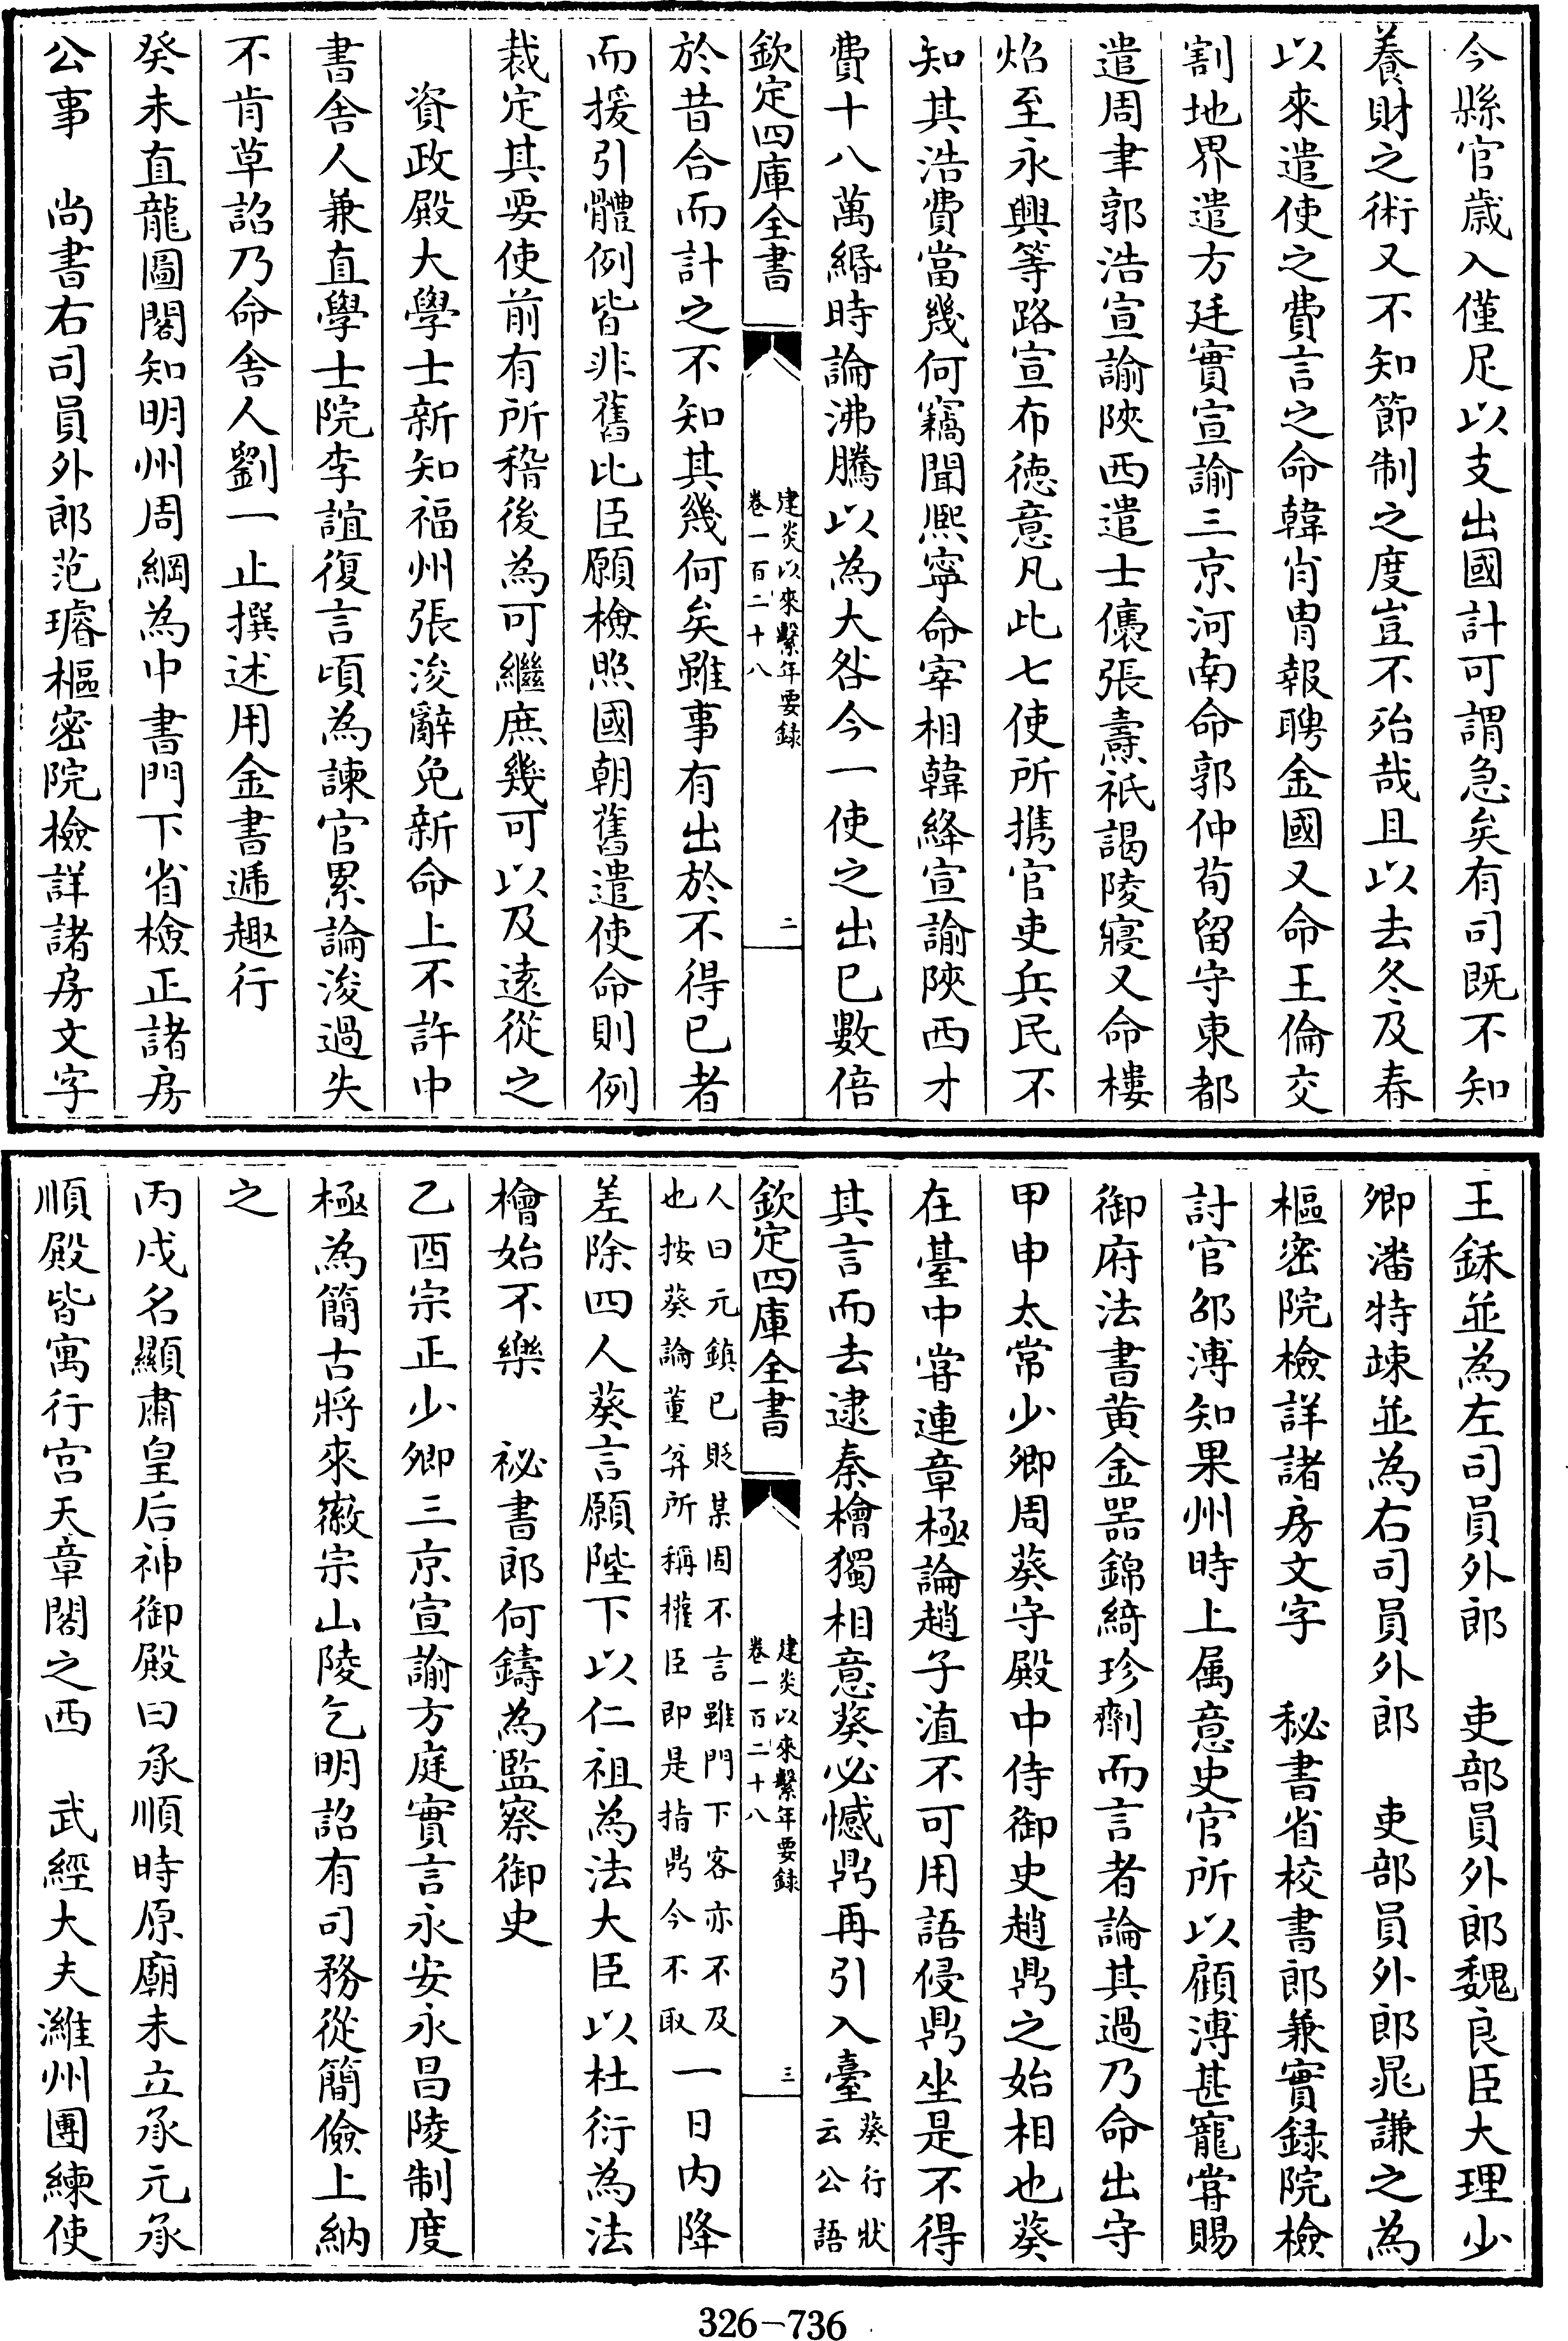 今縣官歲入僅足以支出國計可謂急矣有司既不知
養財之術又不知節制之度豈不殆哉且以去冬及春
以來遣使之費言之命韓肖胄報聘金國又命王倫交
割地界遣方廷實宣諭三京河南命郭仲荀留守東都
遣周聿郭浩宣諭陜西遣士㒟張燾祇謁陵寢又命樓
炤至永興等路宣布徳意凡此七使所携官吏兵民不
知其浩費當幾何竊聞熈寧命宰相韓絳宣諭陜西才
費十八萬緡時論沸騰以為大咎今一使之出已數倍
欽定四庫全書
建炎以來繫年要録
卷一百二十八
二
於昔合而計之不知其幾何矣雖事有出於不得已者
而援引體例皆非舊比臣願檢照國朝舊遣使命則例
裁定其要使前有所稽後為可繼庶幾可以及遠從之
資政殿大學士新知福州張浚辭免新命上不許中
書舍人兼直學士院李誼復言頃為諫官累論浚過失
不肯草詔乃命舍人劉一止撰述用金書遞趣行
癸未直龍圖閣知明州周綱為中書門下省檢正諸房
公事　尚書右司員外郎范璿樞密院檢詳諸房文字
王鉌並為左司員外郎　吏部員外郎魏良臣大理少
卿潘特竦並為右司員外郎　吏部員外郎晁謙之為
樞密院檢詳諸房文字　秘書省校書郎兼實録院檢
討官邵溥知果州時上属意史官所以顧溥甚寵嘗賜
御府法書黄金器錦綺珍劑而言者論其過乃命出守
甲申太常少卿周葵守殿中侍御史趙鼎之始相也葵
在䑓中嘗連章極論趙子淔不可用語侵鼎坐是不得
其言而去逮秦檜獨相意葵必憾鼎再引入臺葵行狀云公語
欽定四庫全書
建炎以來繫年要録
卷一百二十八
三
人曰元鎮已貶某固不言雖門下客亦不及也按葵論董弅所稱權臣即是指鼎今不取一日内降
差除四人葵言願陛下以仁祖為法大臣以杜衍為法
檜始不樂　祕書郎何鑄為監察御史
乙酉宗正少卿三京宣諭方庭實言永安永昌陵制度
極為簡古將來徽宗山陵乞明詔有司務從簡儉上納
之
丙戌名顯肅皇后神御殿曰承順時原廟未立承元承
順殿皆寓行宫天章閣之西　武經大夫濰州團練使
326-736